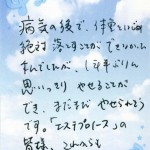 病気の後で、体重というのは
絶対落すことができなかっ
たんでしたが、し1年ぶりに
思いっきりやせることが
でき、まだまだやせられそう
です。「エステプロース」の
皆様、これからも